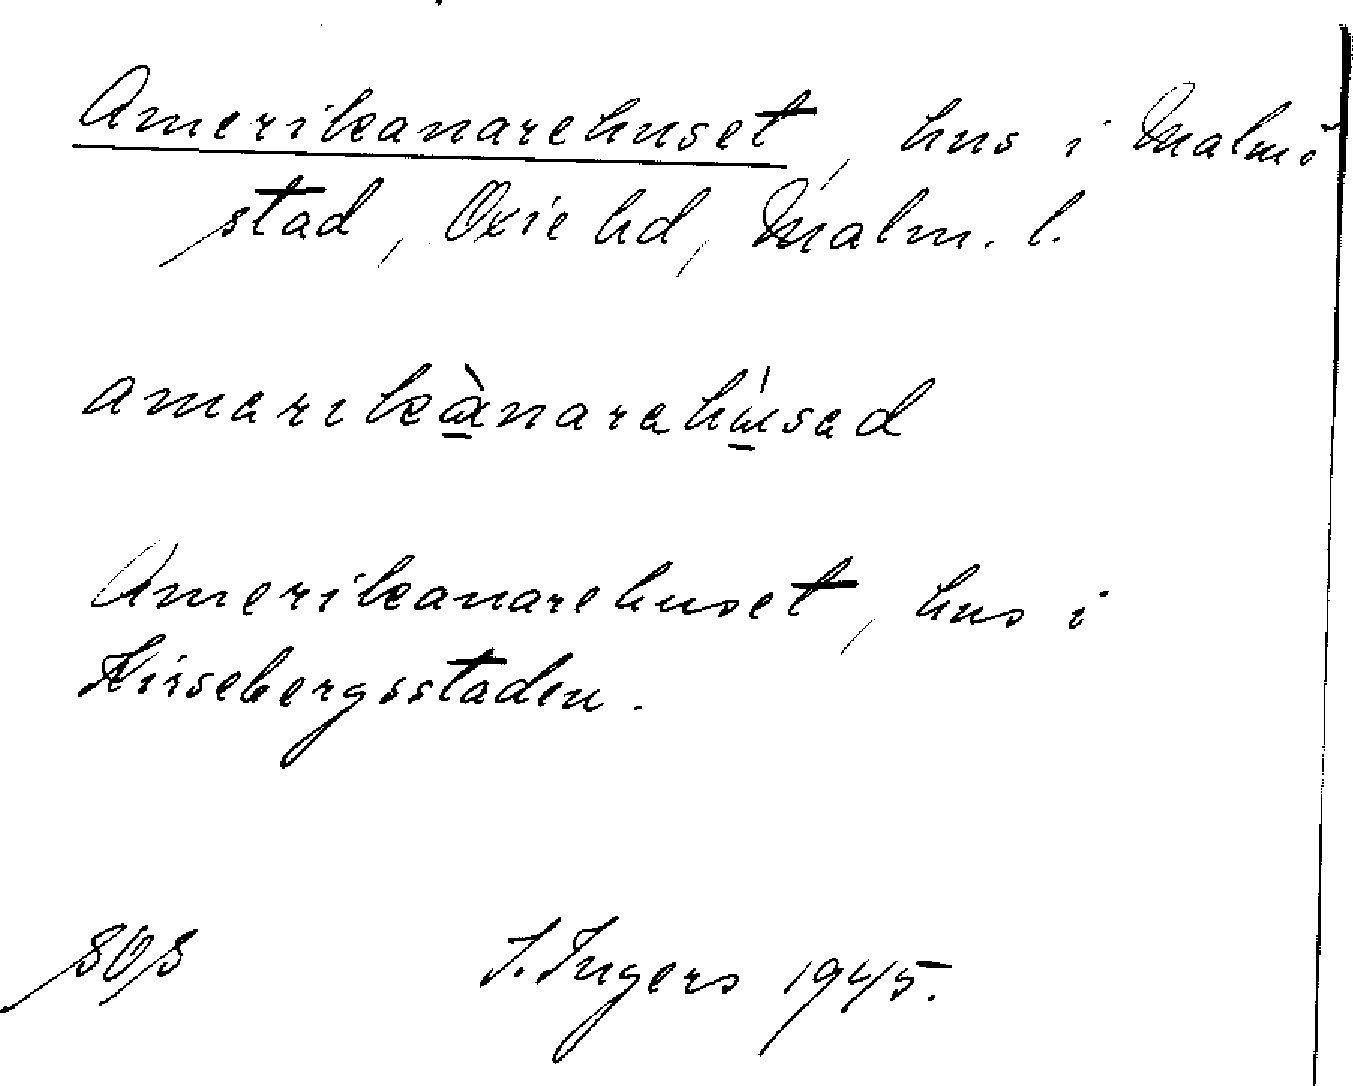 Amerikanarehuset, hus i Malmö
stad, Oxie hd, Malm. l.
amarikànarahúsad
Amerikanarehuset, hus i
Kirsebergsstaden.
I. Ingers 1945.